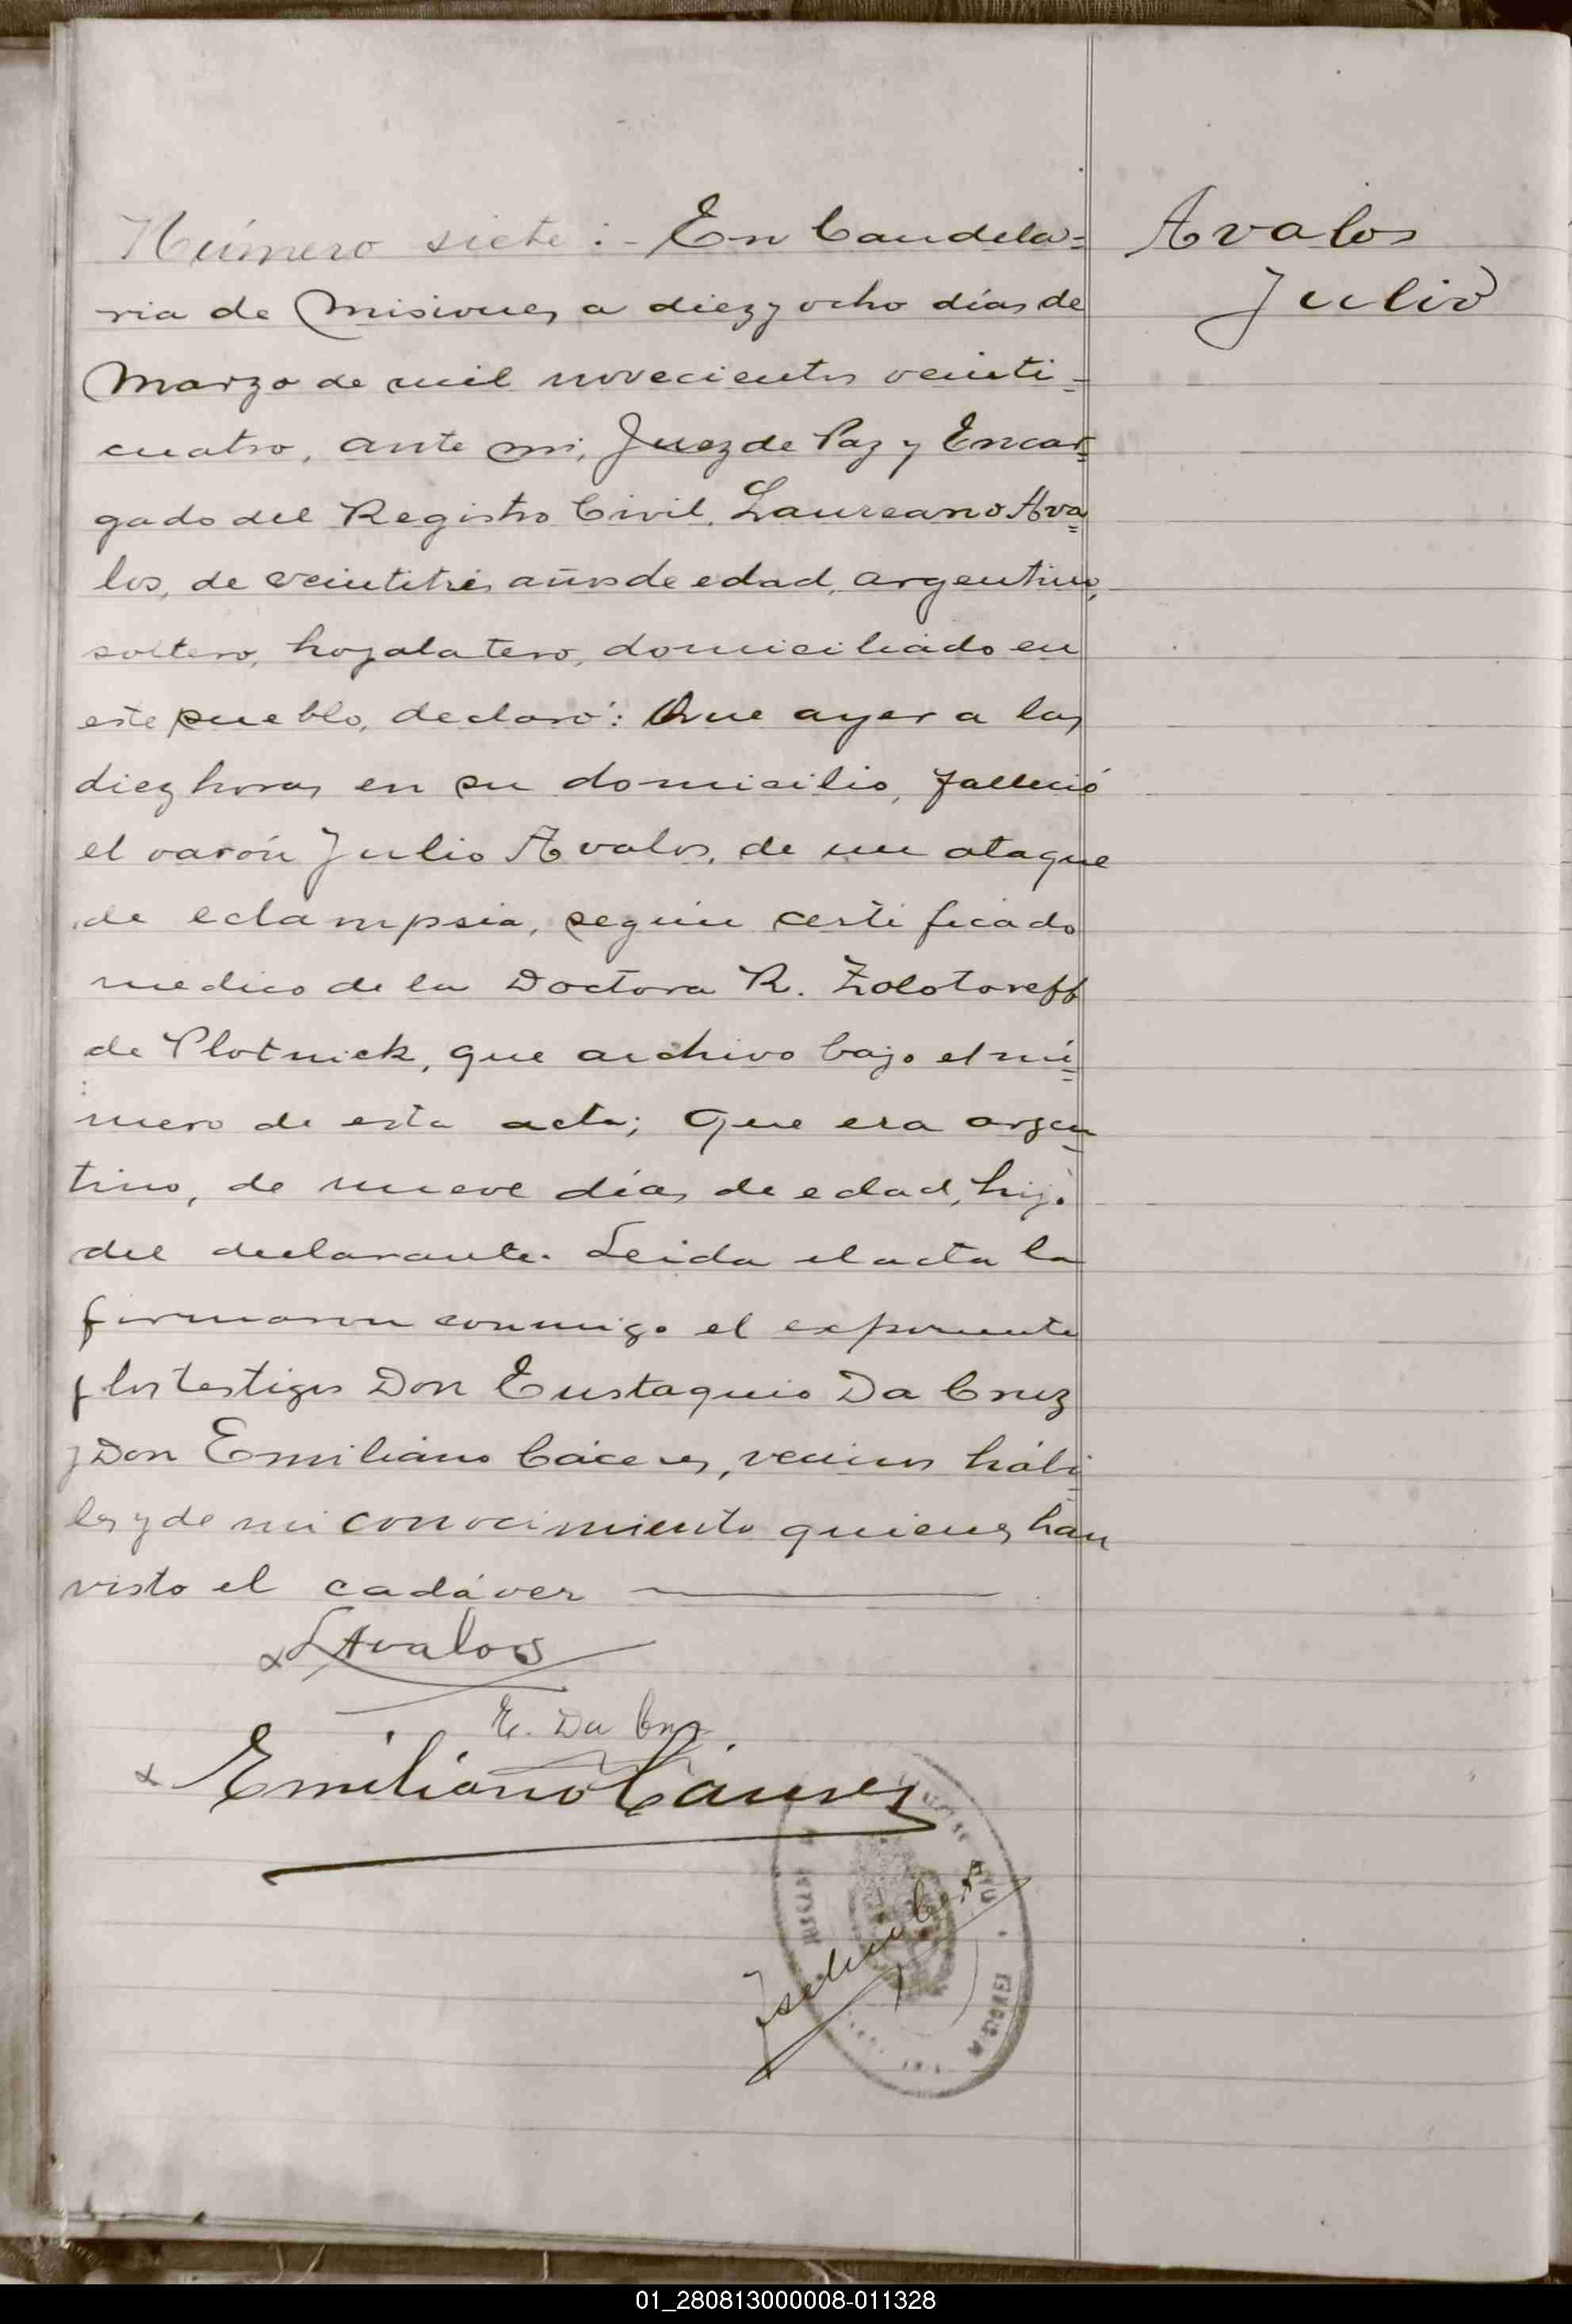 Número siete:- En Candela=
ria de Misiones a diez y ocho días de
Marzo de mil novecientos veinti=
cuatro, ante mi, Juez de Paz y Encar=
gado del Registro Civil, Laureano Ava=
los, de veintitrés años de edad, argentino,
soltero, hojalatero, domiciliado en
este pueblo, declaró: Que ayer a las
diez horas en su domicilio, falleció
el varón Julio Avalos, de un ataque
de eclampsia, según certificado
medico de la Doctora R. Zolotareff
de Plotnick, que archivo bajo el nú=
mero de esta acta; que era argen=
tino, de nueve días de edad, hijo
del declarante. Leida el acta la
firmaron conmigo el exponente
y los testigos Don Eustaquio Da Cruz
y Don Emiliano Cáceres, vecinos hábi=
les y de mi conocimiento quienes han
visto el cadáver
L Avalos
E. Da Cruz
Emiliano Cáceres
MISIONES
Avalos
Julio
01_280813000008-011328